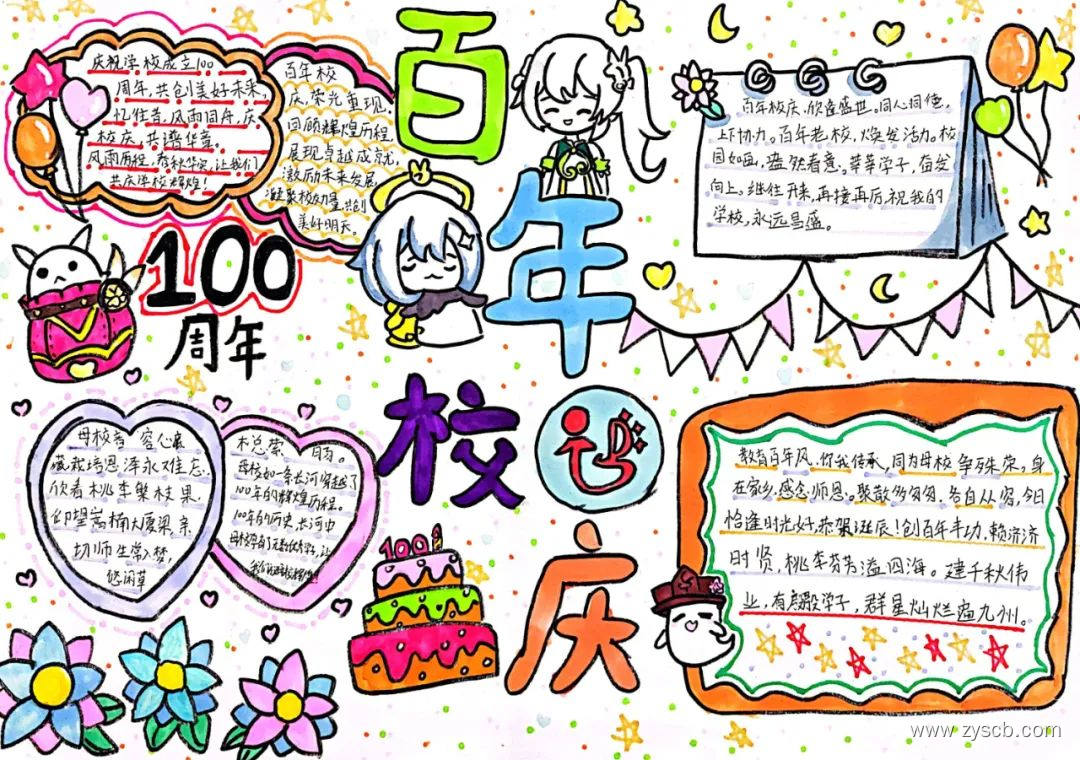 百年校庆
庆祝学校成立100
周年,共创美好未来,
忆往昔,风雨同舟,庆
校庆,共谱华章。
风雨历程,春秋华实,让我们
共庆学校辉煌!
百年校
庆,荣光重现,
回顾辉煌历程,
展现卓越成就,
激励未来发展,
凝聚校友力量,共创
美好明天。
100
周年
百年校庆,欣逢盛世。同心同德,
上下协力。百年老校,焕发活力。校
园如画,盎然春意。莘莘学子,奋发
向上。继往开来,再接再厉,祝我的
学校,永远昌盛。
母校
培恩泽永难忘,
欣看桃李繁枝果,
仰望嵩楠大厦梁,亲
切师生常入梦,
母校如一条长河穿越了
100年的辉煌历程。
100年的历史长河中
100
教育百年风,你我传承,同为母校争殊荣。身
在家乡,感念师恩。聚散匆匆,各自从容,今日
恰逢时光好,恭贺诞辰!创百年丰功,赖济济
时贤,桃李芬芳溢四海。建千秋伟
业,有莘莘学子,群星灿烂遍九州。
www.zyscb.com